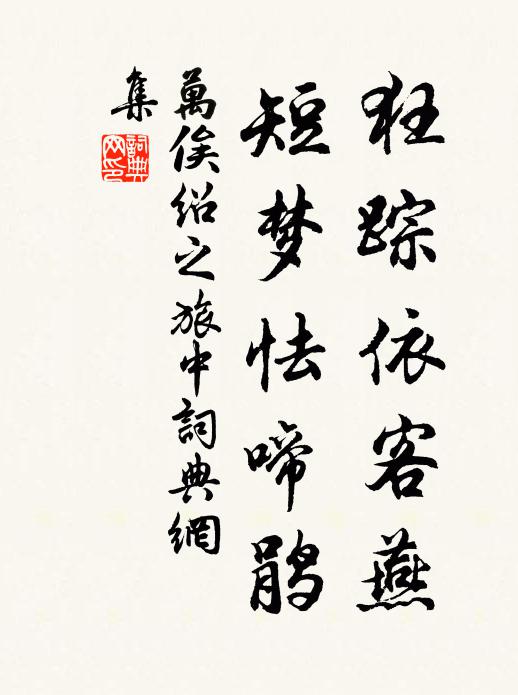 狂踪依客燕
短梦怯啼鹃
萬俟绍之旅中詞典網
集
詞典网印